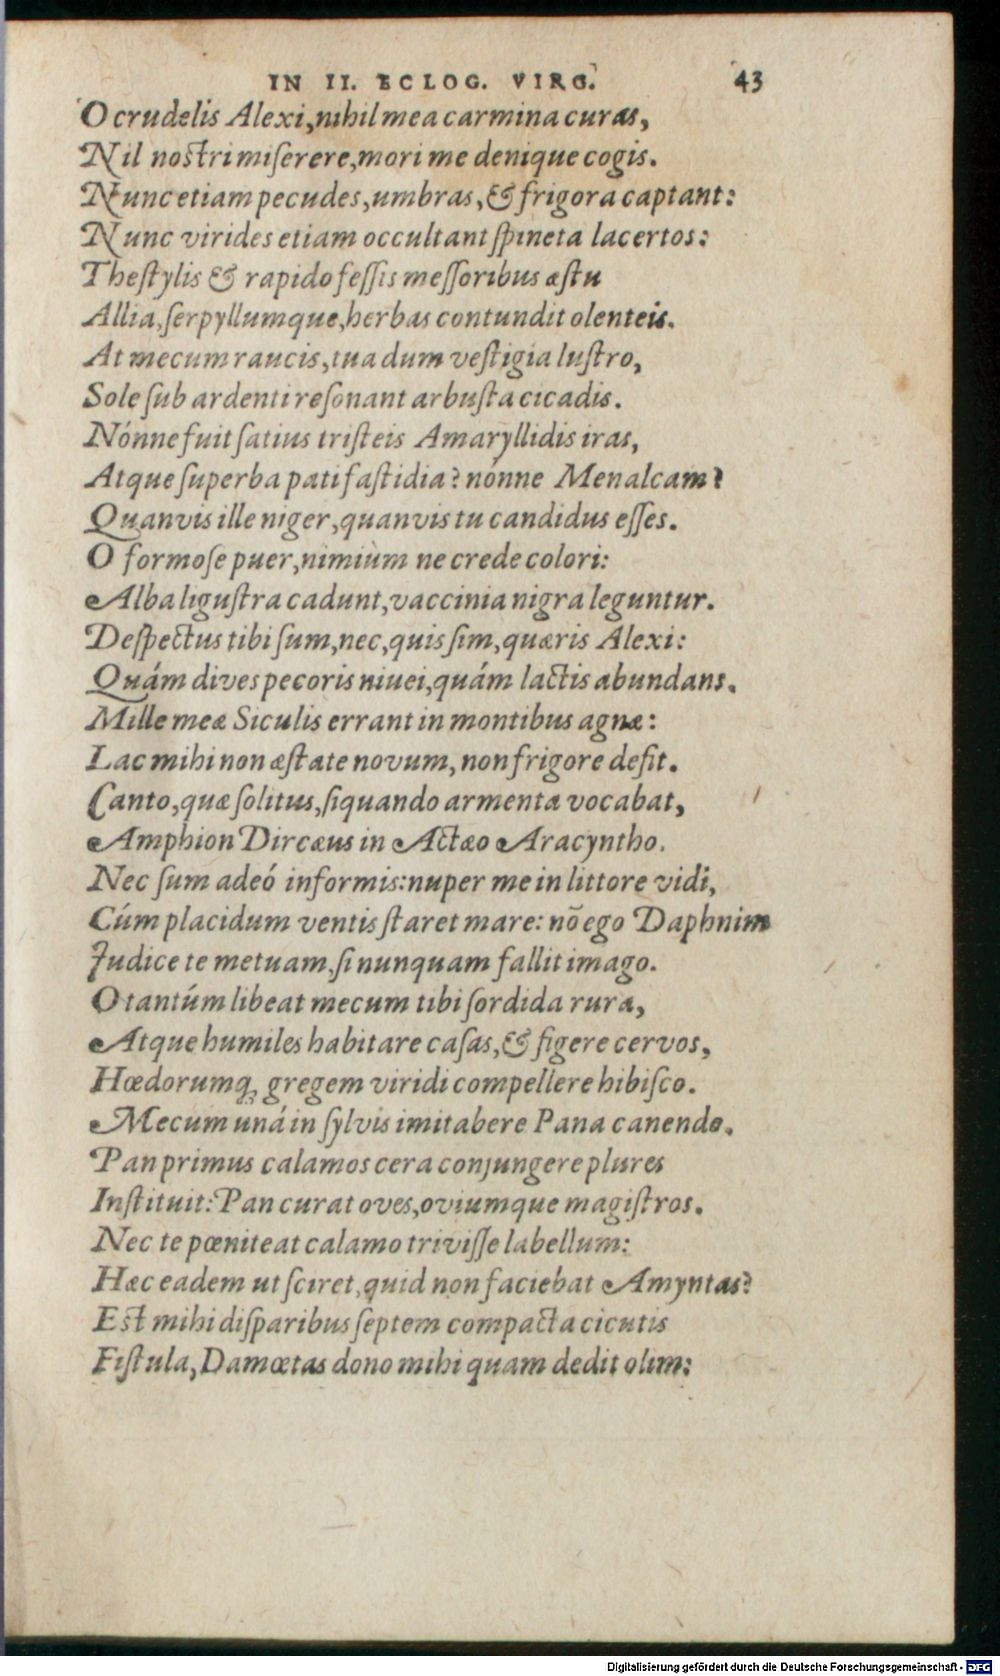 IN II. ECLOG. VIRG. 43
O crudelis Alexi, nihil mea carmina curas,
Nil nostri miſerere, mori me denique cogis.
Nunc etiam pecudes, umbras, & frigora captant:
Nunc virides etiam occultant ſpineta lacertos:
Theſtylis & rapido feſſis meſſoribus æſtu
Allia, ſerpyllumque, herbas contundit olenteis.
At mecum raucis, tua dum veſtigia luſtro,
Sole ſub ardenti reſonant arbuſta cicadis.
Nónne fuit ſatius triſteis Amaryllidis iras,
Atque ſuperba pati faſtidia? nónne Menalcam?
Quanvis ille niger, quanvis tu candidus eſſes.
O formoſe puer, nimiùm ne crede colori:
Alba liguſtra cadunt, vaccinia nigra leguntur.
Deſpectus tibi ſum, nec, quis ſim, quæris Alexi:
Quám dives pecoris niuei, quám lactis abundans.
Mille meæ Siculis errant in montibus agnæ:
Lac mihi non æſtate novum, non frigore defit.
Canto, quæ ſolitus, ſiquando armenta vocabat,
Amphion Dircæus in Actæo Aracyntho.
Nec ſum adeó informis: nuper me in littore vidi,
Cúm placidum ventis ſtaret mare: nō ego Daphnim
Judice te metuam, ſi nunquam fallit imago.
O tantúm libeat mecum tibi ſordida rura,
Atque humiles habitare caſas, & figere cervos,
Hœdorumq; gregem viridi compellere hibiſco.
Mecum uná in ſylvis imitabere Pana canendo.
Pan primus calamos cera conjungere plures
Inſtituit: Pan curat oves, oviumque magiſtros.
Nec te pœniteat calamo triviſſe labellum:
Hæc eadem ut ſciret, quid non faciebat Amyntas?
Est mihi diſparibus ſeptem compacta cicutis
Fiſtula, Damœtas dono mihi quam dedit olim:
Digitalisierung gefördert durch die Deutsche Forschungsgemeinschaft - DFG